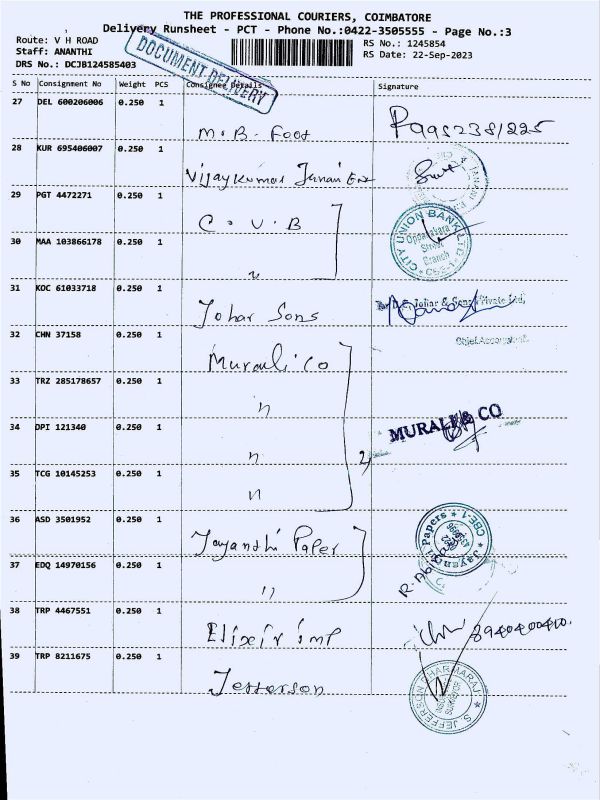 THE PROFESSIONAL COURIERS, COIMBATORE
Delivery Runsheet - PCT - Phone No.:0422-3505555 - Page No.:3
Route: V H ROAD
Staff: ANANTHI
DRS No.: DCJB124585403
RS No.: 1245854
RS Date: 22-Sep-2023
DOCUMENT DELIVERY
S No Consignment No Weight PCS Consignee Details Signature
27 DEL 600206006 0.250 1 M.B. Foot
28 KUR 695406007 0.250 1 Vijaykumar
29 PGT 4472271 0.250 1 C.U.B
CITY UNION BANK LTD
Street
Branch
CBE-1
30 MAA 103866178 0.250 1 "
31 KOC 61033718 0.250 1 Johar Sons
Johar & Sons Private Ltd,
Chief Accountant
32 CHN 37158 0.250 1 Murali Co
33 TRZ 285178657 0.250 1 "
34 DPI 121340 0.250 1 "
MURALI & CO
35 TCG 10145253 0.250 1 "
36 ASD 3501952 0.250 1 Jayanthi Paper
Jayanthi Papers * CBE-1 *
37 EDQ 14970156 0.250 1 "
38 TRP 4467551 0.250 1 Elixir imp
8940400410.
39 TRP 8211675 0.250 1 Jefferson
S. JEFFERSON DHARMARAJ
SURVEYOR